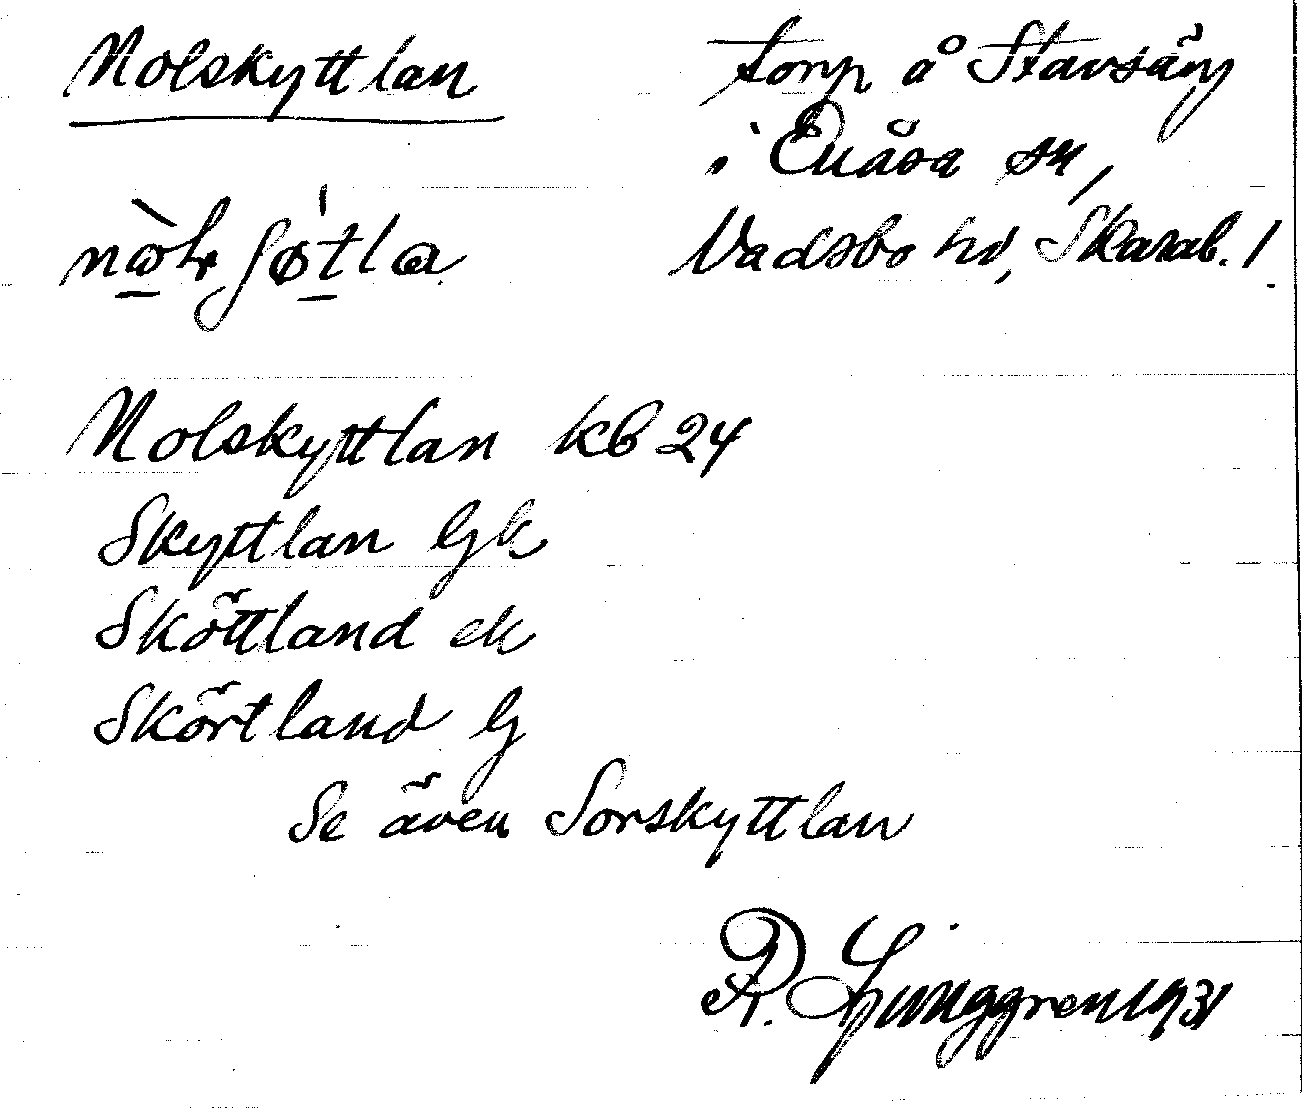 Nolskyttlan
torp å Stavsäng
i Enåsa sn,
Vadsbo hd, Skarab. l.
Nolskyttlan kb 24
Skyttlan Gk
Sköttland ek
Skörtland G
Se även Sorskyttlan
R. Ljunggren 1931